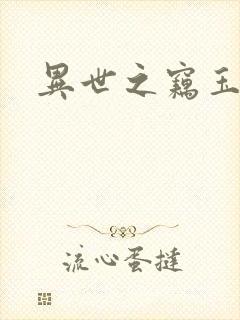 異世之竊玉
流心蛋撻